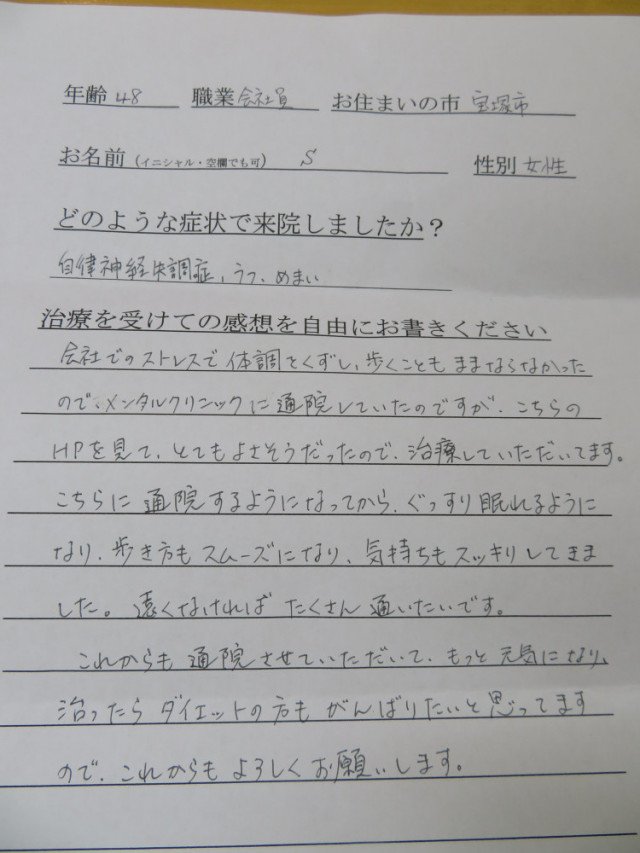 年齢 48 職業 会社員 お住まいの市 宝塚市
お名前（イニシャル・空欄でも可） S 性別 女性
どのような症状で来院しましたか？
自律神経失調症、うつ、めまい
治療を受けての感想を自由にお書きください
会社でのストレスで体調をくずし、歩くこともままならなかった
ので、メンタルクリニックに通院していたのですが、こちらの
HPを見て、とてもよさそうだったので、治療していただいてます。
こちらに通院するようになってから、ぐっすり眠れるように
なり、歩き方もスムーズになり、気持ちもスッキリしてきま
した。遠くなければたくさん通いたいです。
これからも通院させていただいて、もっと元気になり、
治ったらダイエットの方もがんばりたいと思ってます
ので、これからもよろしくお願いします。